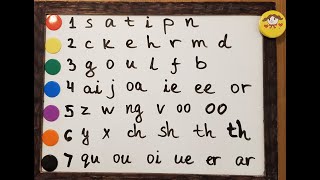 1 s a t i p n
2 c k e h r m d
3 g o u l f b
4 ai j oa ie ee or
5 z w ng v oo oo
6 y x ch sh th th
7 qu ou oi ue er ar